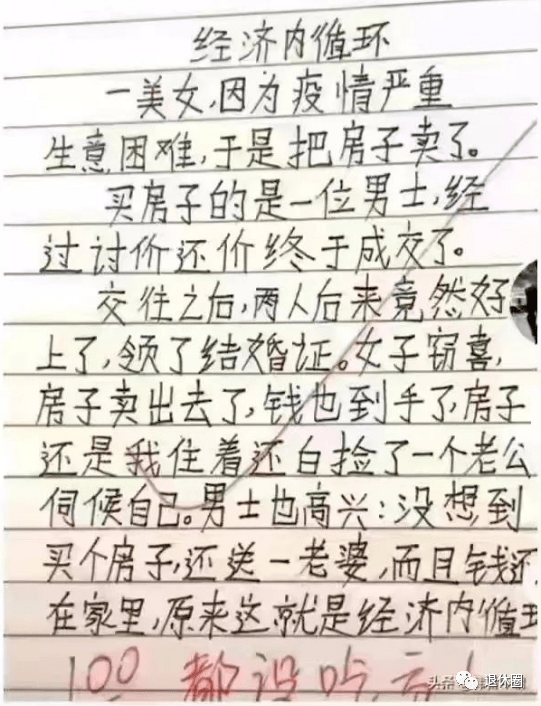 经济内循环
一美女,因为疫情严重
生意困难,于是把房子卖了。
买房子的是一位男士,经
过讨价还价终于成交了。
交往之后,两人后来竟然好
上了,领了结婚证。女子窃喜,
房子卖出去了,钱也到手了房子
还是我住着还白捡了一个老公
伺候自己。男士也高兴:没想到
买个房子,还送一老婆,而且钱还
在家里,原来这就是经济内循环
100 都没吃亏!
头条
退休圈